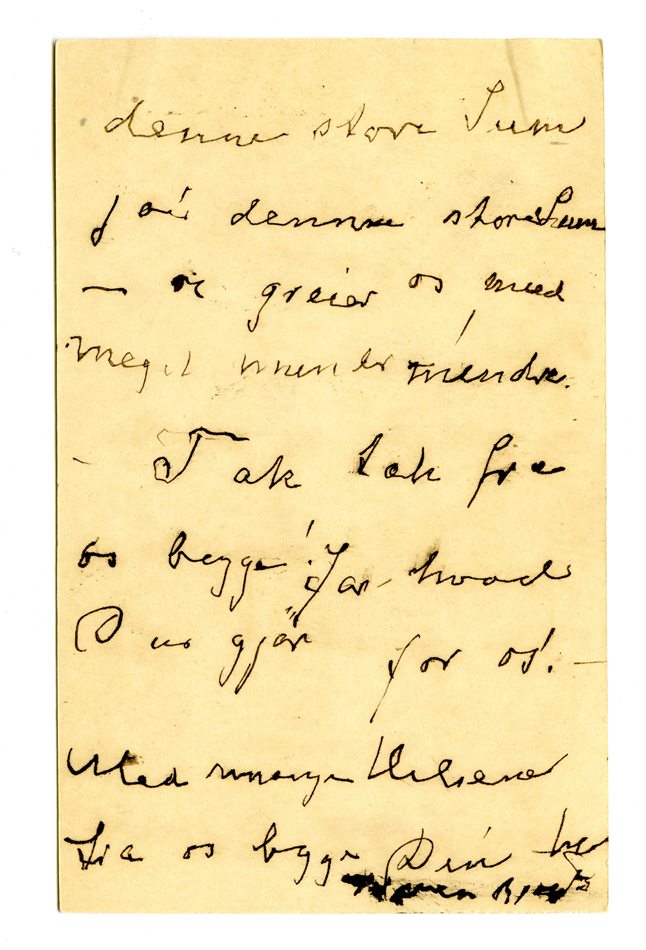 denne store Sum
på denne store Sum
— vi greier os med
meget minder mindre.
- Tak tak fra
os begge! for hvad
Du gjør for os! —
Med mange Hilsener
fra os begge Din